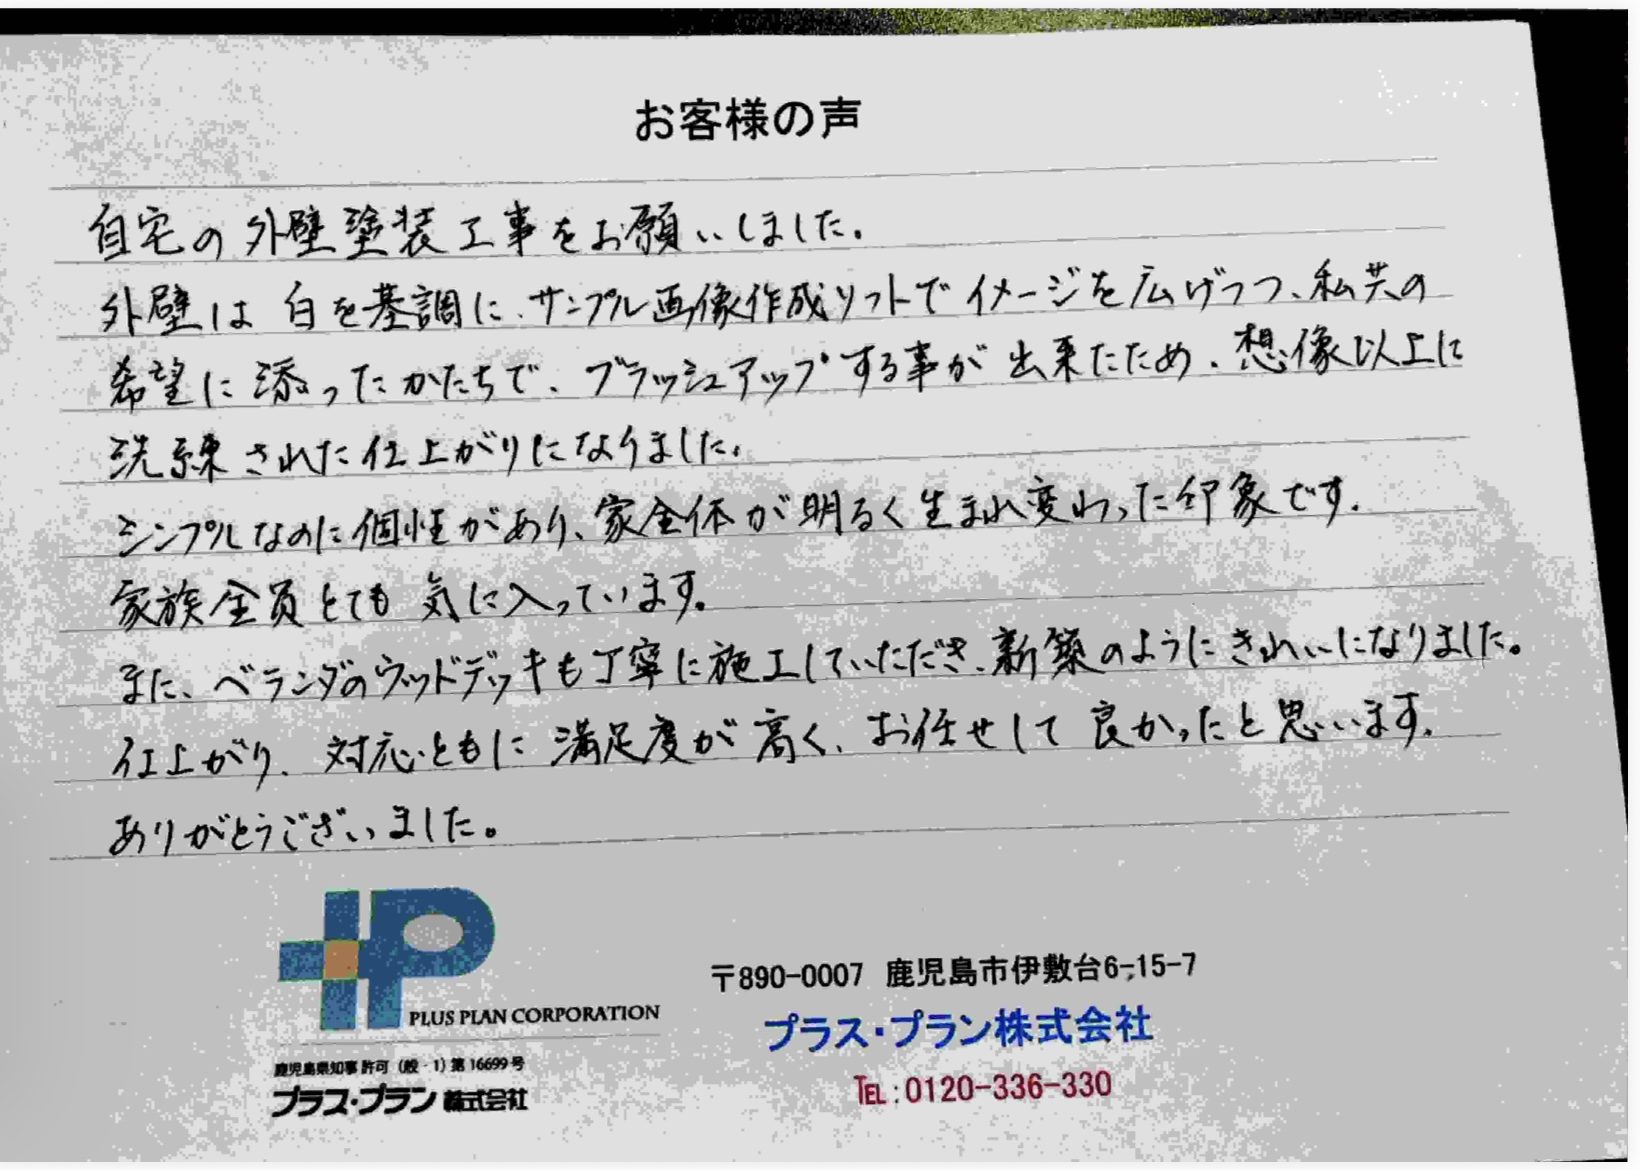 お客様の声
自宅の外壁塗装工事をお願いしました。
外壁は白を基調に、サンプル画像作成ソフトでイメージを広げつつ、私共の
希望に添ったかたちで、ブラッシュアップする事が出来たため、想像以上に
洗練された仕上がりになりました。
シンプルなのに個性があり、家全体が明るく生まれ変わった印象です。
家族全員とても気に入っています。
また、ベランダのウッドデッキも丁寧に施工していただき、新築のようにきれいになりました。
仕上がり、対応ともに満足度が高く、お任せして良かったと思います。
ありがとうございました。
PLUS PLAN CORPORATION
鹿児島県知事 許可 (般-1) 第16699号
プラス・プラン 株式会社
〒890-0007 鹿児島市伊敷台6-15-7
プラス・プラン株式会社
TEL:0120-336-330